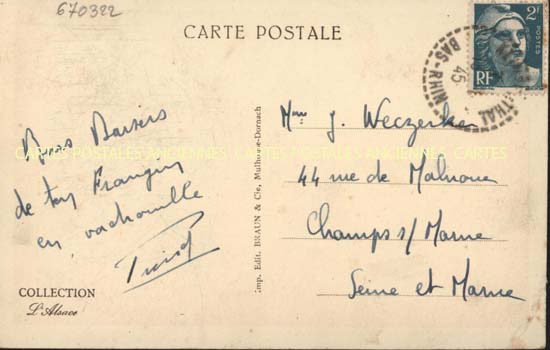 670322
CARTE POSTALE
2F
POSTES
RF
BAS-RHIN
45
THAL
Bons Baisers
de ton Frangin
en vadrouille
Mme J. Weczerken
44 rue de Malnoue
Champs s/ Marne
Seine et Marne
CARTES POSTALES ANCIENNES CARTES POSTALES ANCIENNES CARTES
Imp. Edit. BRAUN & Cie, Mulhouse-Dornach
COLLECTION
L'Alsace